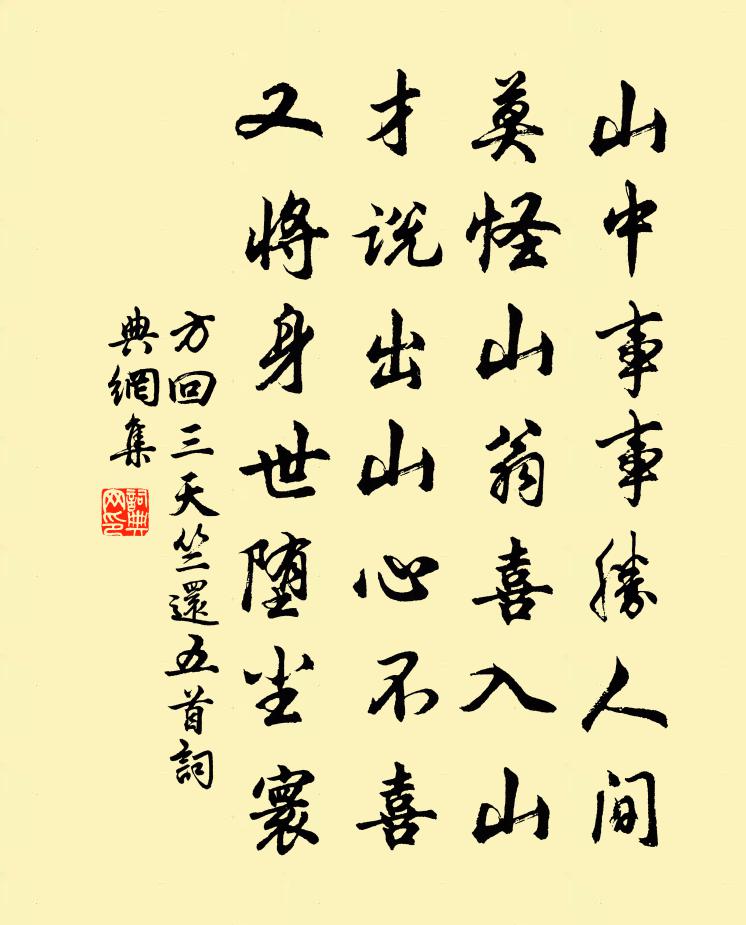 山中事事勝人間
莫怪山翁喜入山
才说出山心不喜
又將身世堕尘寰
方回三天竺還五首詞
典網集
詞典
网印